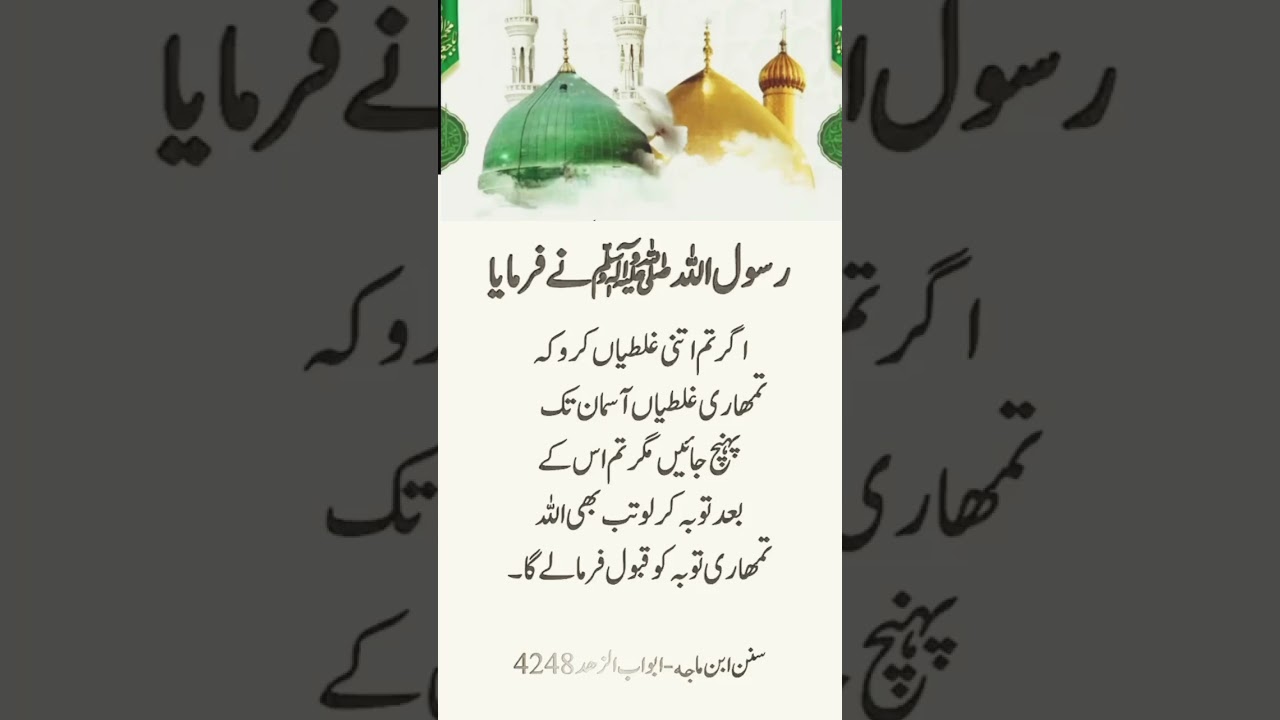 رسول اللہ ﷺ نے فرمایا
اگر تم اتنی غلطیاں کرو کہ
تمھاری غلطیاں آسمان تک
پہنچ جائیں مگر تم اس کے
بعد توبہ کر لو تب بھی اللہ
تمھاری توبہ کو قبول فرمالے گا۔
سنن ابن ماجہ-ابواب الزھد 4248